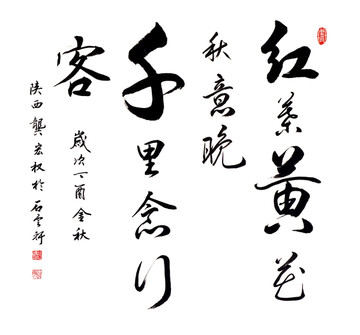 红叶黄花
秋意晚
千里念行
客
岁次丁酉金秋
陕西龚宏权于石云轩